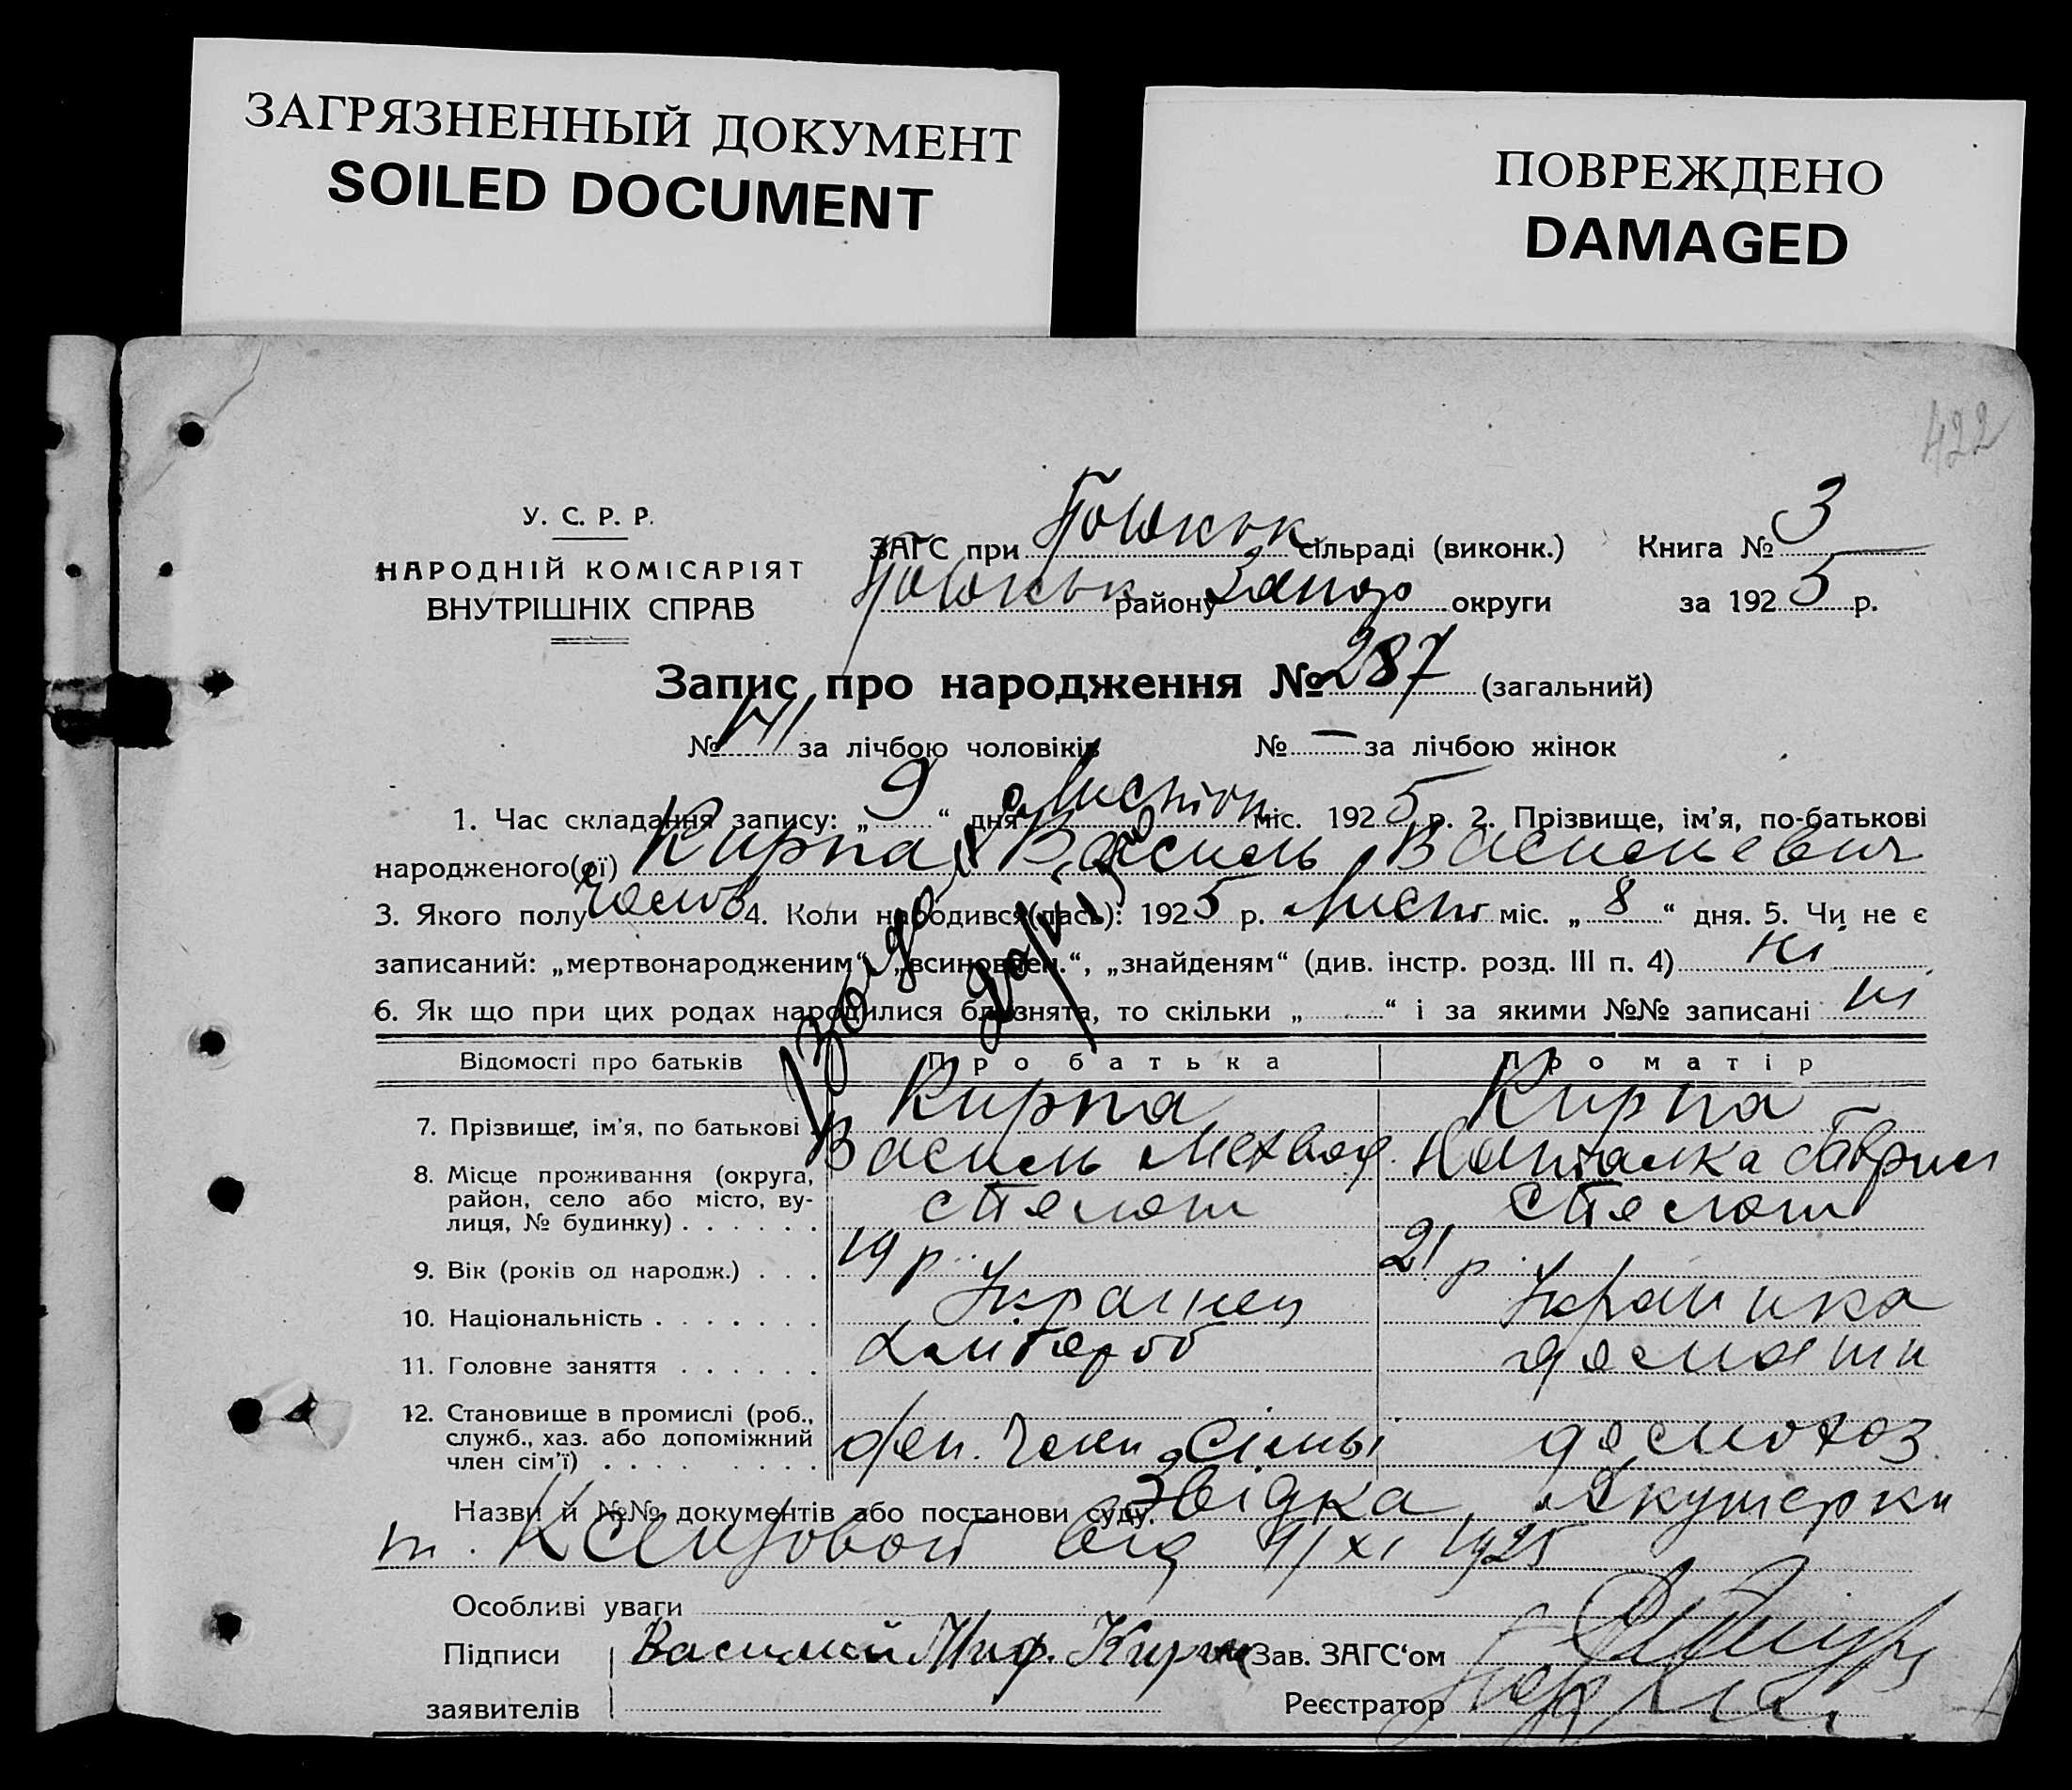 ЗАГРЯЗНЕННЫЙ ДОКУМЕНТ
SOILED DOCUMENT
ПОВРЕЖДЕНО
DAMAGED
422
У. С. Р. Р.
НАРОДНІЙ КОМІСАРІЯТ
ВНУТРІШНІХ СПРАВ
ЗАГС при сільраді (виконк.) Книга № 3
району Запор округи за 1925 р.
Запис про народження № 287 (загальний)
№ за лічбою чоловіків № — за лічбою жінок
1. Час складання запису: „ 9 “ дня Листоп міс. 1925 р. 2. Прізвище, ім'я, по-батькові
народженого(ої) Кирпа Василь Васильевич
3. Якого полу 4. Коли народився(лась): 1925 р. Лист міс. „ 8 “ дня. 5. Чи не є
записаний: „мертвонародженим“, „всиновлен.“, „знайденям“ (див. інстр. розд. III п. 4) ні
6. Як що при цих родах народилися близнята, то скільки „ “ і за якими №№ записані ні
Відомості про батьків Про батька Про матір
7. Прізвище, ім'я, по батькові Кирпа Кирпа
Василь Наталка
8. Місце проживання (округа,
район, село або місто, ву-
лиця, № будинку)
9. Вік (років од народж.) 19 р. 21 р.
10. Національність Украінец Украинка
11. Головне заняття
12. Становище в промислі (роб.,
служб., хаз. або допоміжний
член сім'ї) сімьі домохоз
Назви й №№ документів або постанови суду. Звідка Акушерки
від XI 1925
Особливі уваги
Підписи Василий Миф. Кирпа Зав. ЗАГС'ом
заявителів Реєстратор